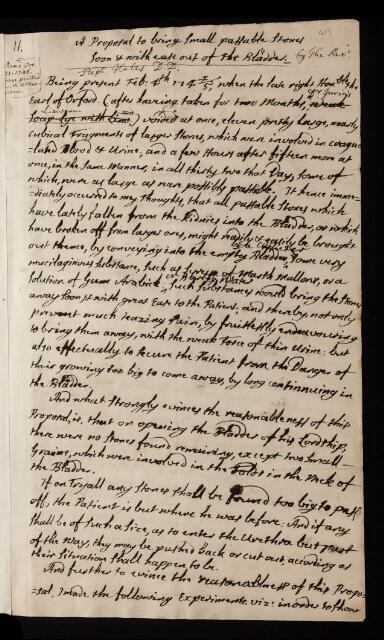 11.
413
A Proposal to bring Small passable Stones
Soon & with ease out of the Bladder. by the Revd.
Steph. Hales D.D.
Read Oct.
31. 1745.
Being present Feb: 4th 174 4/5, when the late Right Honble the
Earl of Orford (after having taken for two Months,
Soap-lye with Lime) voided at once, eleven pretty large, nearly
cubical Fragments of larger Stones, which were involved in coagu-
-lated Blood & Urine, and a few Hours after fifteen more at
once, in the same Manner, in all thirty two that Day, some of
which, were as large as were possibly passable. It hence imme-
-diately occurred to my thoughts, that all passable Stones which
have lately fallen from the Kidnies into the Bladder, or which
have broken off from larger ones, might easily be brought
out thence, by conveying into the empty Bladder, some very
mucilaginous Substance, such as Syrup of Marsh mallows, or a
Solution of Gum Arabic or Barley Water
Such Substances would bring the Stones
away soon & with great Ease to the Patient. and thereby, not only
prevent much teazing Pain, by fruitlessly endeavouring
to bring them away, with the weak Force of thin Urine: but
also effectually to secure the Patient from the Danger of
their growing too big to come away, by long continuing in
the Bladder.
And what strongly evinces the reasonableness of this
Proposal, is, that on opening the Bladder of his Lordship,
there were no Stones found remaining, except two small
Grains, which were involved in the Folds in the Neck of
the Bladder.
If on Tryall any Stones shall be found too big to pass
off, the Patient is but where he was before. And if any
shall be of such a Size, as to enter the Urethra but part
of the Way, they may be pushed back or cut out, acording as
their Situation shall happen to be.
And further to evince the reasonableness of this Propo-
-sal, I made the following Experiments. viz: in order to show